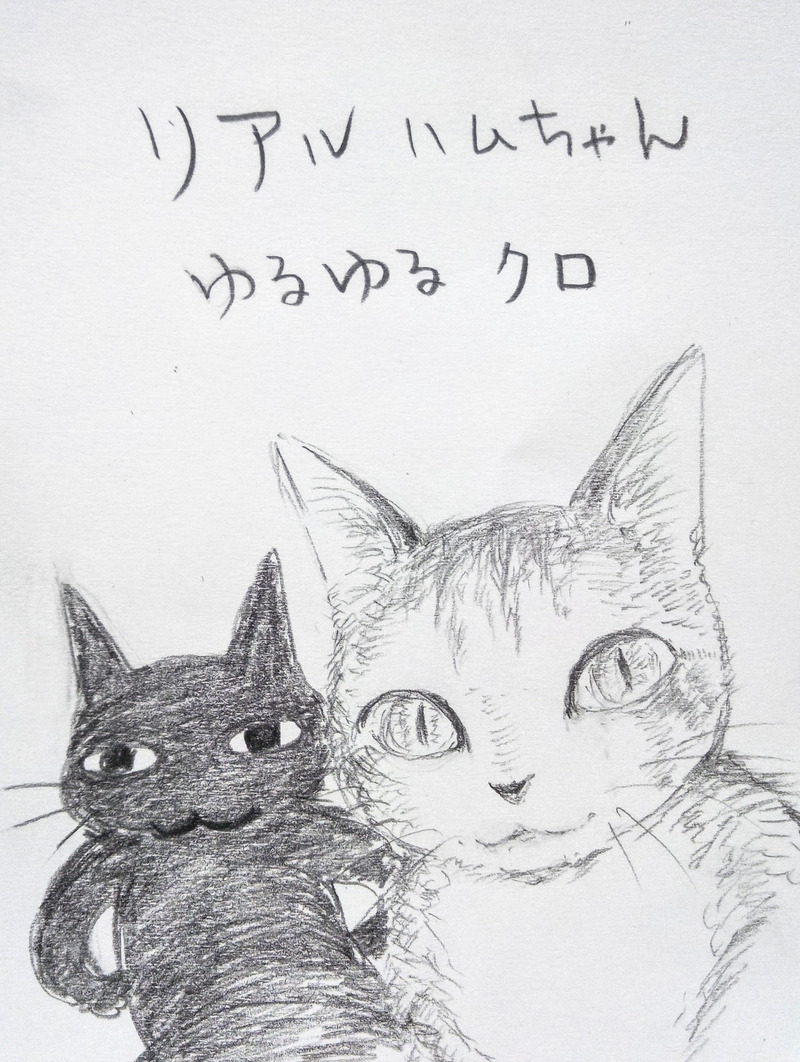 リアル ハムちゃん
ゆるゆる クロ